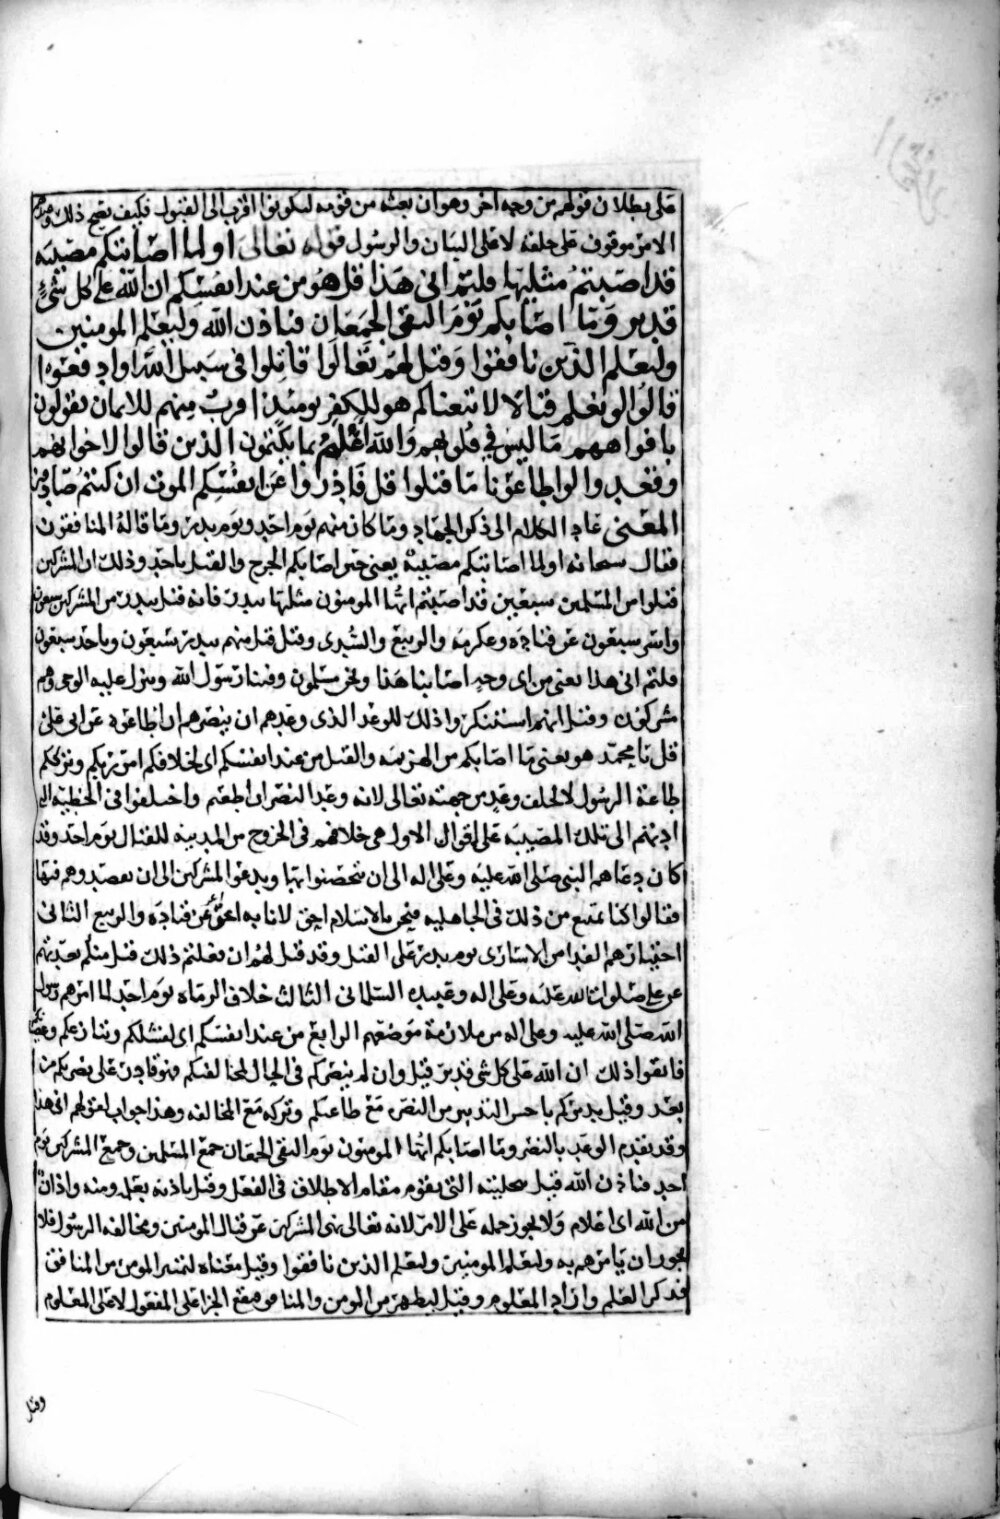 على بطلان قولهم من وجه اخر وهو ان بعثه من قومه ليكونوا اقرب الى القبول فكيف يصح ذلك
الامر موقوف على خلقه لا على البيان والرسول قوله تعالى اولما اصابتكم مصيبه
قد اصبتم مثليها قلتم انى هذا قل هو من عند انفسكم ان الله على كل شيء
قدير وما اصابكم يوم التقى الجمعان فباذن الله وليعلم المومنين
وليعلم الذين نافقوا وقيل لهم تعالوا قاتلوا في سبيل الله او ادفعوا
قالوا لو نعلم قتالا لاتبعناكم هم للكفر يومئذ اقرب منهم للايمان يقولون
بافواههم ما ليس في قلوبهم والله اعلم بما يكتمون الذين قالوا لاخوانهم
وقعدوا لو اطاعونا ما قتلوا قل فادرؤا عن انفسكم الموت ان كنتم صادقين
المعنى عاد الكلام الى ذكر الجهاد وما كان منهم يوم احد ويوم بدر وما قاله المنافقون
فقال سبحانه اولما اصابتكم مصيبة يعني حين اصابكم الجرح والقتل باحد وذلك ان المشركين
قتلوا من المسلمين سبعين قد اصبتم ايها المومنون مثليها ببدر فانه قتل ببدر من المشركين سبعون
واسر سبعون عن قتاده وعكرمه والربيع والسدي وقيل قتل منهم ببدر سبعون وباحد سبعون
قلتم انى هذا يعني من اى وجه اصابنا هذا ونحن مسلمون وفينا رسول الله وينزل عليه الوحى وهم
مشركون وقيل انهم استنكروا ذلك للوعد الذى وعدهم ان ينصرهم ان اطاعوه عن ابى على
قل يا محمد هو يعني ما اصابكم من الهزيمه والقتل من عند انفسكم اى لخلافكم امر ربكم وترككم
طاعة الرسول لا لخلف وعد من جهته تعالى لانه وعد النصر ان اطعتم واختلفوا فى الخطيئه التي
ادتهم الى تلك المصيبه على اقوال الاول هى خلافهم فى الخروج من المدينه للقتال يوم احد وقد
كان دعاهم النبى صلى الله عليه وعلى اله الى ان يتحصنوا بها ويدعوا المشركين الى ان يقصدوهم فيها
فقالوا كنا نمتنع من ذلك فى الجاهليه فنحن بالاسلام احق لانا به اعز عن قتاده والربيع الثانى
اختيارهم الفدا من الاسارى يوم بدر على القتل وقد قيل لهم ان فعلتم ذلك قتل منكم بعدتهم
عن على صلوات الله عليه وعلى اله وعبيده السلمانى الثالث خلاف الرماه يوم احد لما امرهم رسول
الله صلى الله عليه وعلى اله من ملازمة موضعهم الرابع من عند انفسكم اى لفشلكم وتنازعكم
فاتقوا ذلك ان الله على كل شى قدير قيل وان لم ينصركم فى الحال لمخالفتكم فهو قادر على نصركم من
بعد وقيل يدبركم باحسن التدبير من النصر مع طاعتكم وتركه مع المخالفه وهذا جواب لقولهم انى هذا
وقد تقدم الوعد بالنصر وما اصابكم ايها المومنون يوم التقى الجمعان جمع المسلمين وجمع المشركين يوم
احد فباذن الله قيل بتخليته التى يقوم مقام الاطلاق فى الفعل وقيل باذنه بعلمه ومنه واذان
من الله اى اعلام ولا يجوز حمله على الامر لانه تعالى نهى المشركين عن قتال المومنين ومخالفه الرسول فلا
يجوز ان يامرهم به وليعلم المومنين وليعلم الذين نافقوا وقيل معناه ليتميز المومن من المنافق
فذكر العلم واراد المعلوم وقيل ليظهر من المومن والمنافق ما يقع الجزا على المفعول لا على المعلوم
وقيل